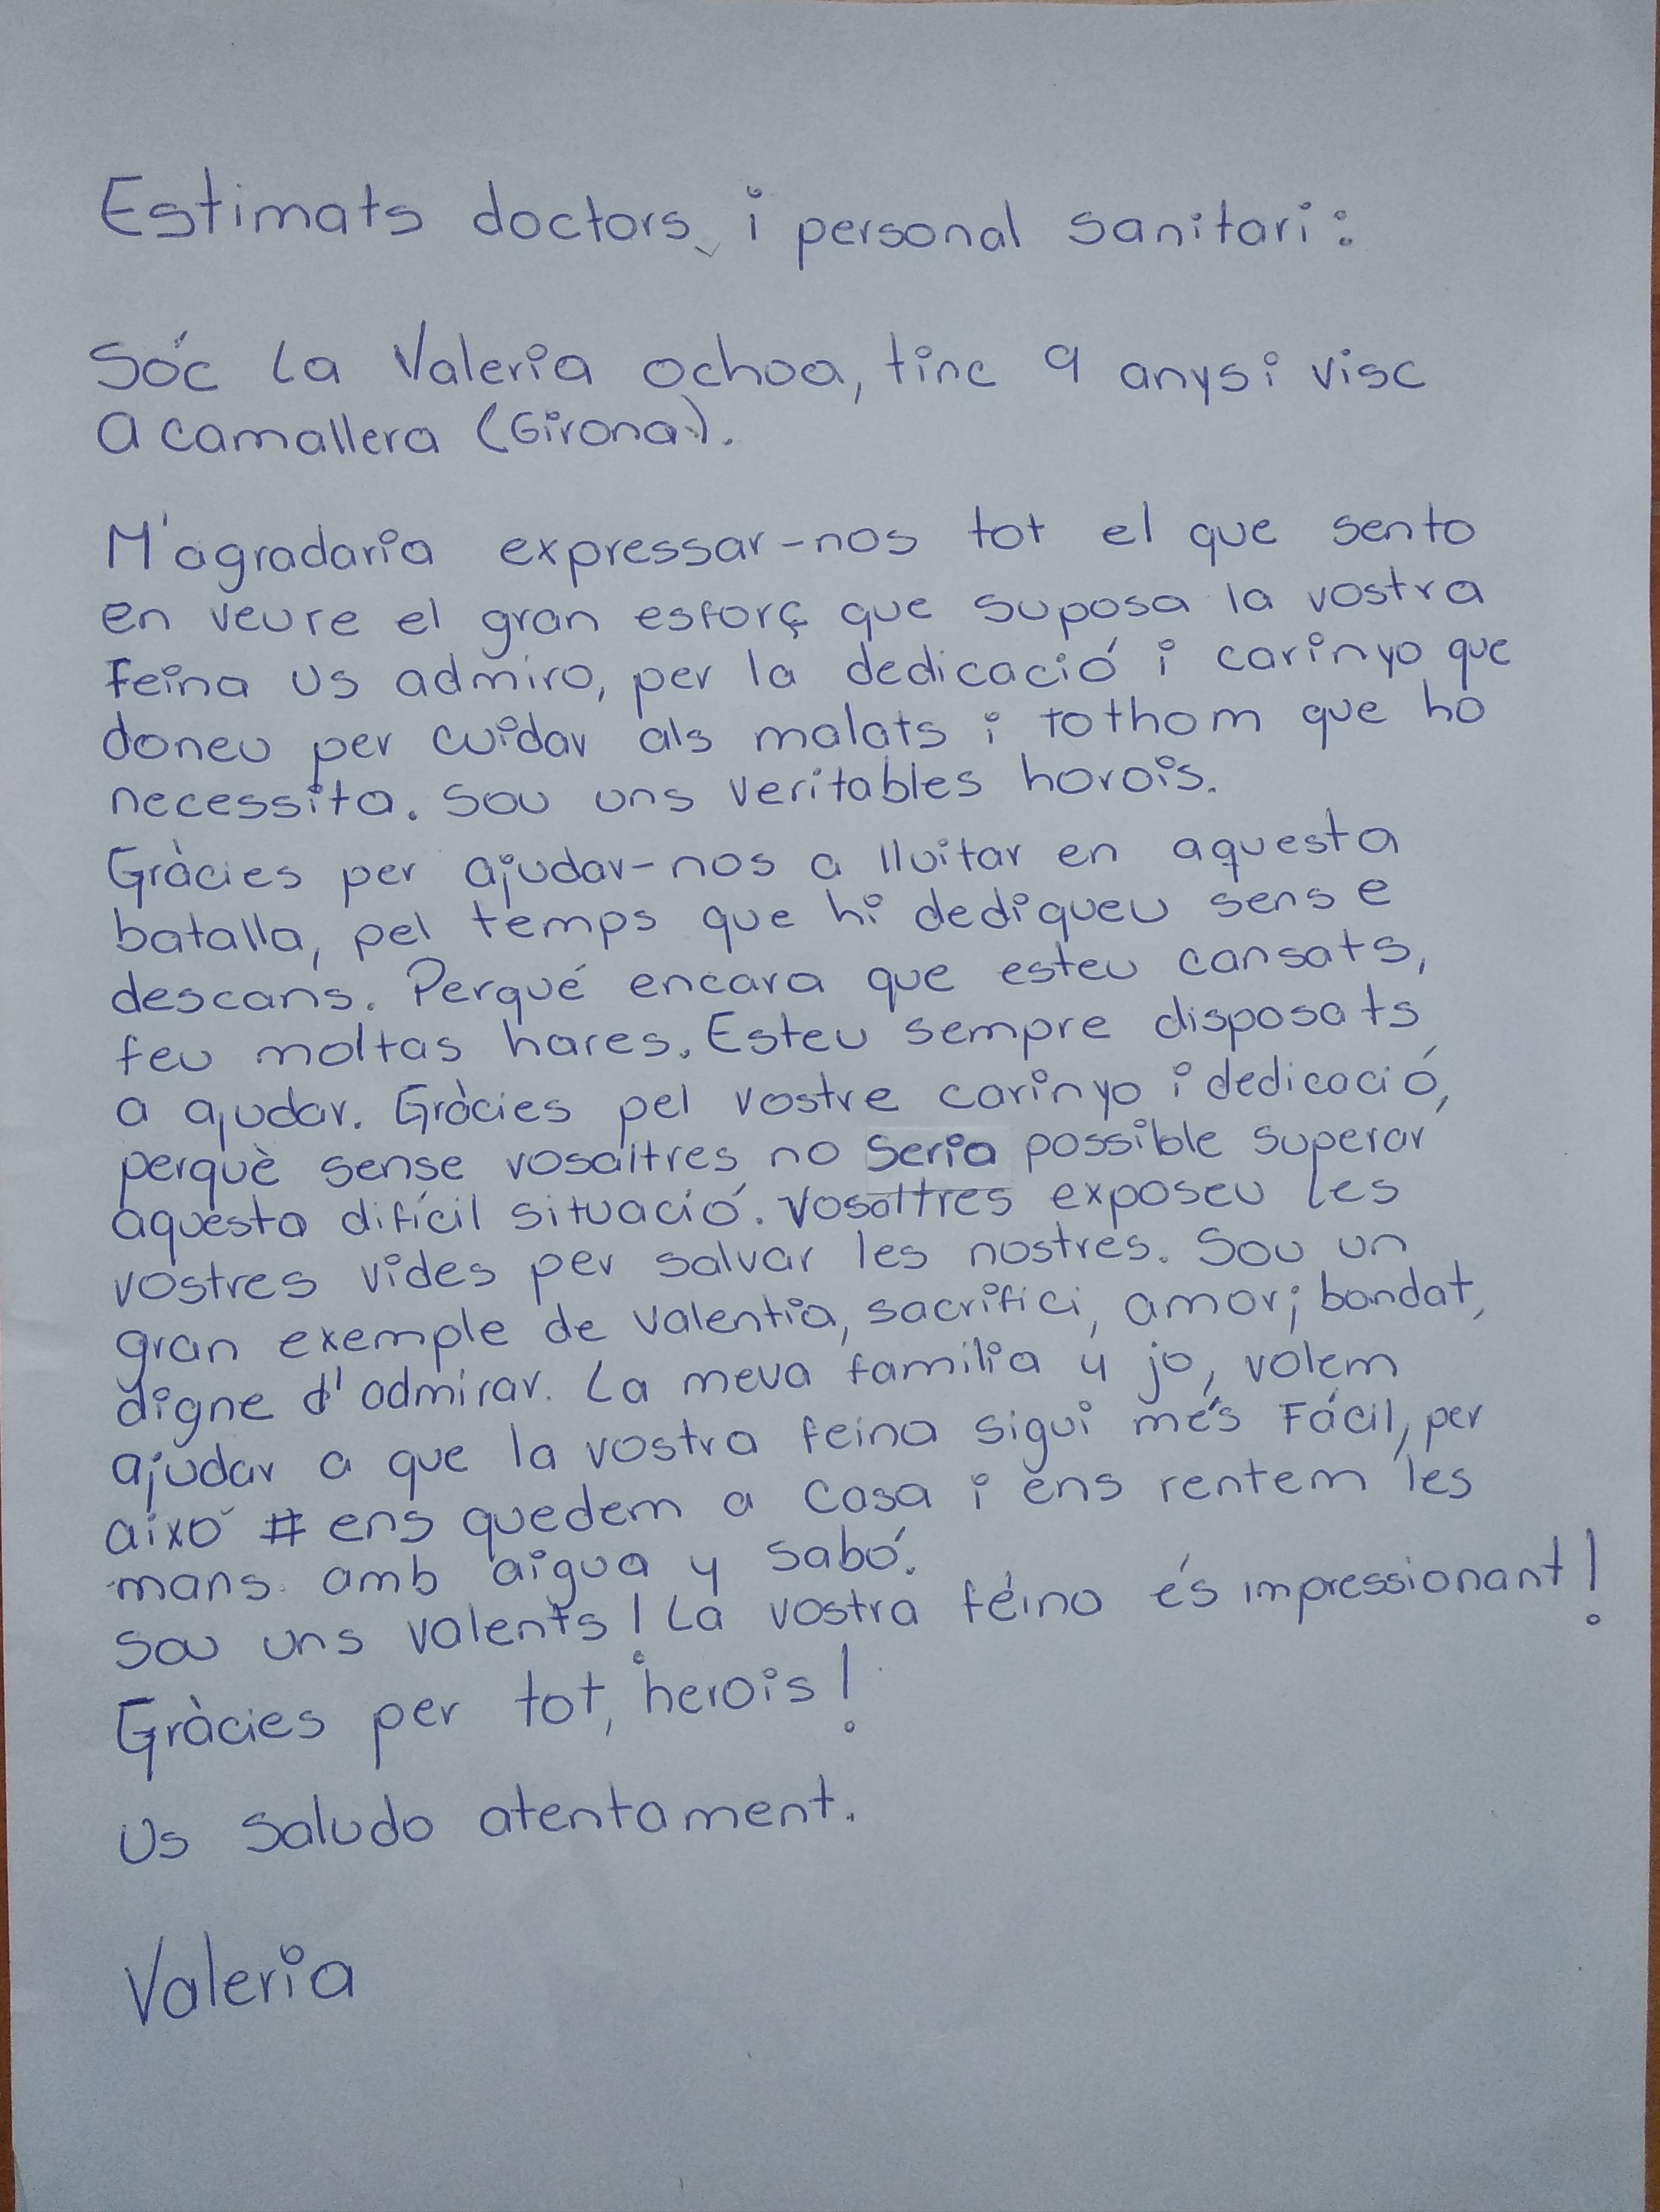 Estimats doctors, i personal sanitari:
Sóc la Valeria ochoa, tinc 9 anys i visc
a camallera (Girona).
M'agradaria expressar-nos tot el que sento
en veure el gran esforç que suposa la vostra
feina us admiro, per la dedicació i carinyo que
doneu per cuidar als malats i tothom que ho
necessita. Sou uns veritables horois.
Gràcies per ajudar-nos a lluitar en aquesta
batalla, pel temps que hi dediqueu sense
descans. Perqué encara que esteu cansats,
feu moltas hares. Esteu sempre disposats
a ajudar. Gràcies pel vostre carinyo i dedicació,
perquè sense vosaltres no seria possible superar
aquesta difícil situació. Vosaltres exposeu les
vostres vides per salvar les nostres. Sou un
gran exemple de valentia, sacrifici, amor i bondat,
digne d'admirar. La meva familia y jo, volem
ajudar a que la vostra feina sigui més Fácil, per
aixó # ens quedem a casa i ens rentem les
mans amb aigua y sabó.
Sou uns valents! La vostra feina és impressionant!
Gràcies per tot, herois!
Us saludo atentament.
Valeria